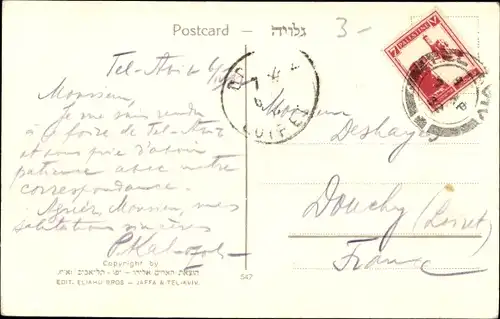 Postcard — גלויה
3-
7 PALESTINE 7
Tel-Aviv 4/
Monsieur,
Je me suis rendu
à la foire de Tel-Aviv
et vous prie d'avoir
patience avec notre
correspondance.
Agréer Monsieur, mes
salutations sincères
Monsieur
Deshayes
Douchy (Loiret)
France
Copyright by
הוצאת האחים אליהו - יפו - תל-אביב
EDIT. ELIAHU BROS - JAFFA & TEL-AVIV.
547